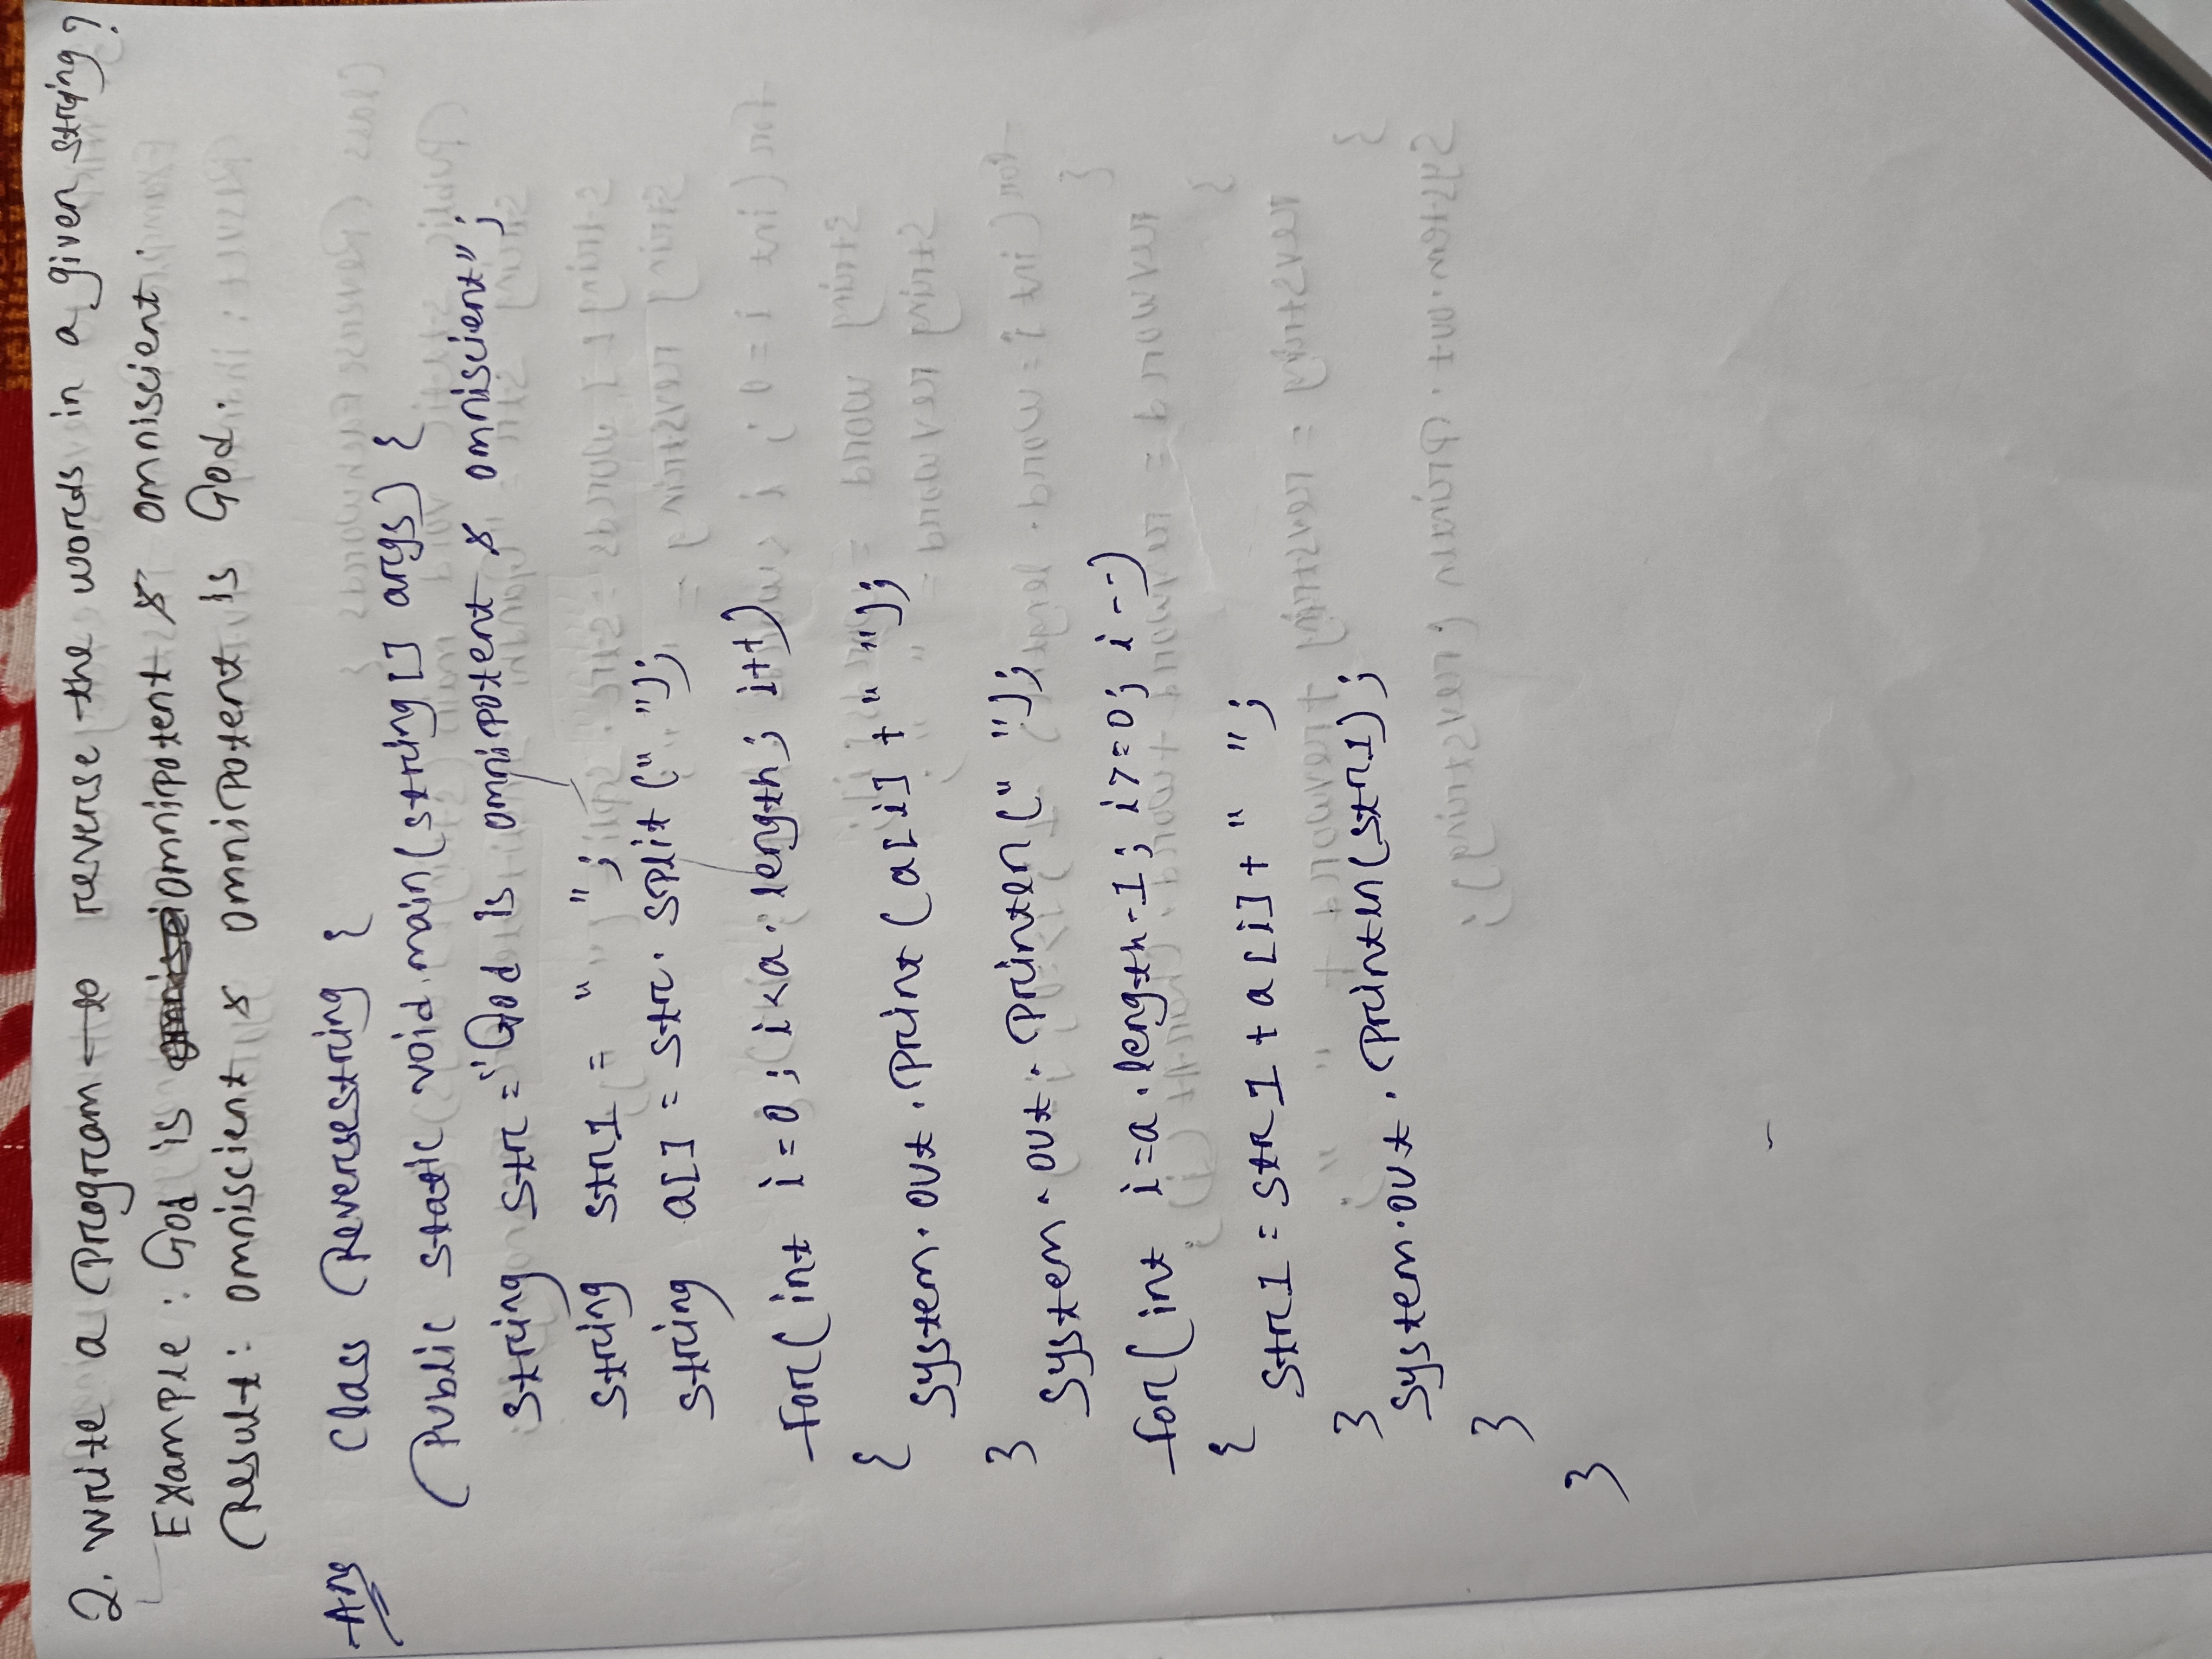 2. Write a Program to reverse the words in a given string?
Example: God is omnipotent & omniscient.
Result: omniscient & omnipotent is God.
Ans Class Reversestring {
Public static void main(string[] args) {
string str = "God is omnipotent & omniscient";
string str1 = " ";
string a[] = str. split(" ");
for(int i=0; i<a.length; i++)
{
System.out.Print(a[i]+" ");
}
System.out.Println(" ");
for(int i=a.length-1; i>=0; i--)
{
str1 = str1+a[i]+" ";
}
System.out.Println(str1);
}
}